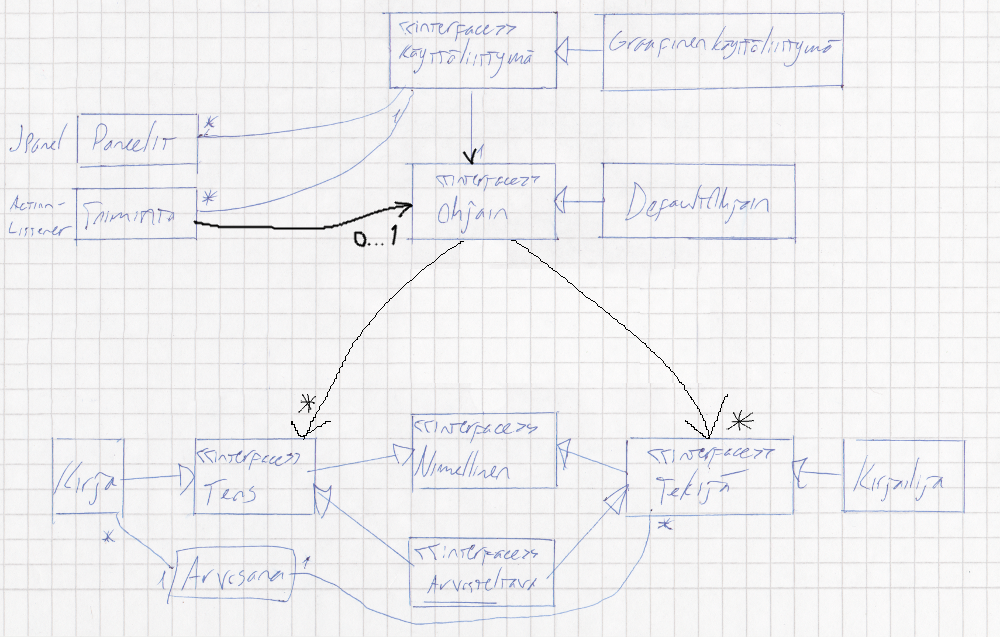 <<interfacess>>
Käyttöliittymä
Graafinen käyttöliittymä
1
*
JPanel
Paneelit
1
*
Action-
Listener
Toiminta
<<interface>>
Ohjain
DefaultOhjain
0...1
*
*
<<interface>>
Nimellinen
Kirja
<<interface>>
Teos
<<interface>>
Tekijä
Kirjailija
*
*
1
Arvosana
1
<<interface>>
Arvosteltava